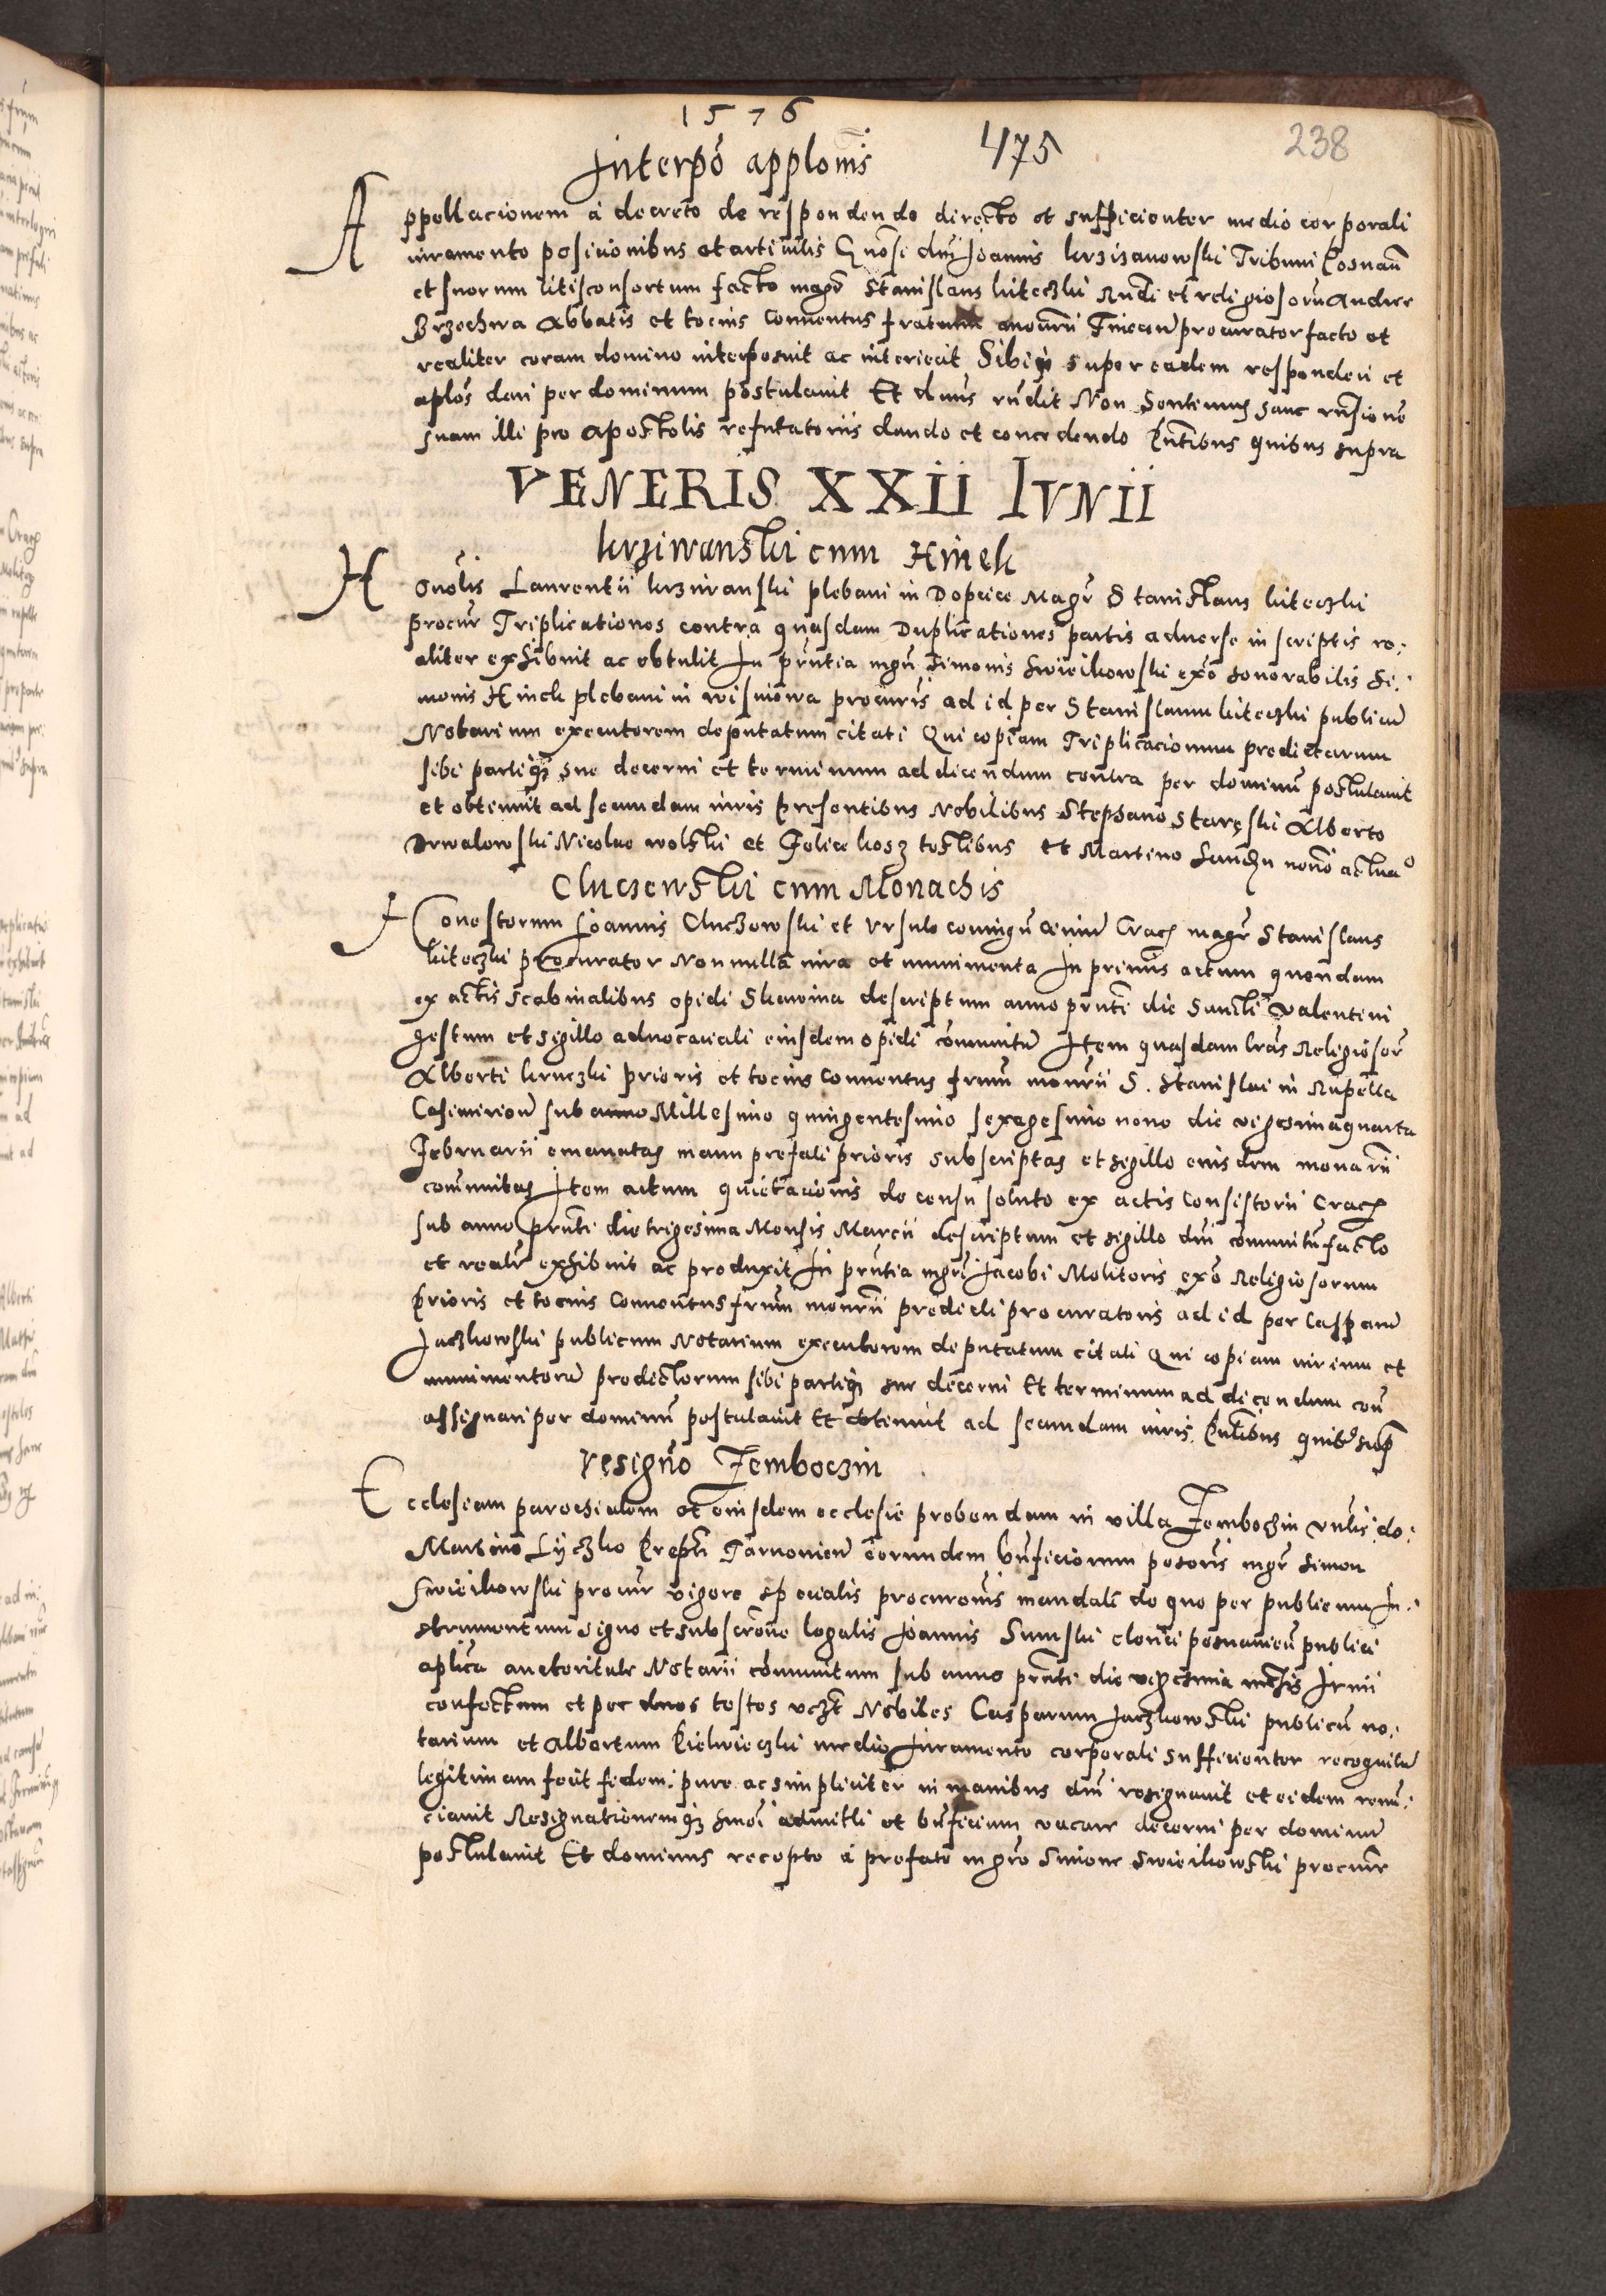 1576
Interpo applonis 475 238
Appellacionem a decreto de respondendo directo et sufficienter medio corporali
iuramento posicionibus et articulis Gnosi dni Joannis krzizanowski Tribuni Posnan
et suorum litisconsortum facto magr Stanislaus kiteczki Rndi et religiosoru Andree
Brzechwa Abbatis et tocius Conuentus fratrum procurator facto et
realiter coram domino interposuit ac interiecit Sibiq super eadem responderi et
aplos dari per dominum postulauit Et dnus rndit Non Sentimus hanc rnsione
suam illi pro apostolis refutatoriis dando et concedendo Pntibus quibus supra
VENERIS XXII IVNII
krziwanski cum Hinek
Honolis Laurentii krziwanski plebani in Dopcice Magr Stanislaus kiteczki
procur Triplicationes contra quasdam Duplicationes partis aduerse in scriptis re:
aliter exhibuit ac obtulit In pntia mgri Simonis Swieikowski exo honorabilis Si:
monis Hinek plebani in wisniowa procuris ad id per Stanislaum kiteczki publicu
Notarium executorem deputatum citati Qui copiam Triplicacionum predictarum
sibi partiq sue decerni et terminum ad dicendum contra per dominu postulauit
et obtinuit ad secundam iuris Presentibus Nobilibus Stephano Staręski Alberto
Drwalowski Nicolao wolski et Felice kosz testibus et Martino actuao
Cluczewski cum Monachis
Honestorum Joannis Cluczowski et Vrsule coniugu ciuiu Crac magr Stanislaus
kiteczki procurator Nonnulla iura et munimenta In primis actum quendam
ex actis Scabinalibus opidi Skawina descriptum anno pnti die Sancti Valentini
gestum et sigillo aduocaciali eiusdem opidi comunitu Item quasdam lras Religiosor
Alberti kruczki prioris et tocius Conuentus frum monrii S. Stanislai in Rupella
Casimirien sub anno Millesimo quingentesimo sexagesimo nono die vigesimaquarta
Februarii emanatas manu prefati prioris subscriptas et sigillo eiusdem monarii
comunitas Item actum quietacionis de censu soluto ex actis Consistorii Crac
sub anno pnti die trigesima Mensis Marcii descriptum et sigillo dni comunitu facto
et realr exhibuit ac produxit In pntia mgri Jacobi Molitoris exo Religiosorum
Prioris et tocius Conuentus frum monrii predicti procuratoris ad id per Casparu
Jaczkowski publicum Notarium executorem deputatum citati Qui copiam iurium et
munimentoru predictorum sibi partiq sue decerni Et terminum ad dicendum con
assignari per dominu postulauit Et obtinuit ad secundam iuris Pntibus quibs sup
resigno Zemboczin
Ecclesiam parochialem et eiusdem ecclesie prebendam in villa Zemboczin vnlis do:
Martino Lyczko Prepti Tarnouien eorundem bnficiorum possoris mgr Simon
Swieikowski procur vigore specialis procuronis mandati de quo per publicum In:
strumentum signo et subscrone legalis Joannis clerici posnanien publici
aplica auctoritate Notarii comunitum sub anno pnti die vigesima msis Junii
confectum et per duos testes vczt Nobiles Casparum Jaczkowski publicu no:
tarium et Albertum Kielwieczki medio Juramento corporali sufficienter recognitu
legitimam fecit fidem: pure ac simpliciter in manibus dni resignauit et eidem renu:
ciauit Resignationemq hmoi admitti et bnficium vacare decerni per dominu
postulauit Et dominus recepto a prefato mgro Simone Swieikowski procure